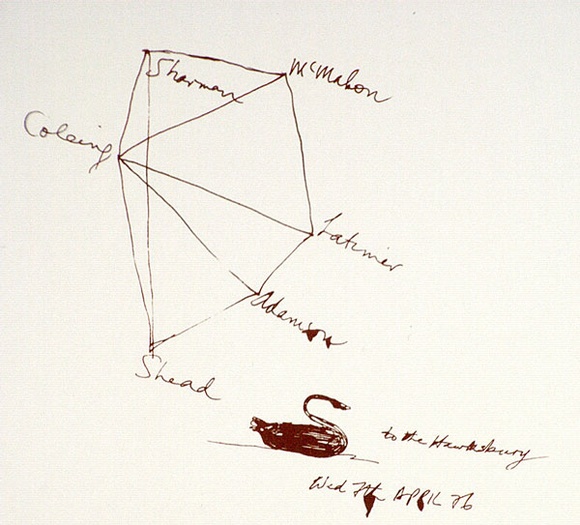 Sharman
McMahon
Coleing
Latimer
Adamson
Shead
to the Hawksbury
Wed 7th APRIL 76